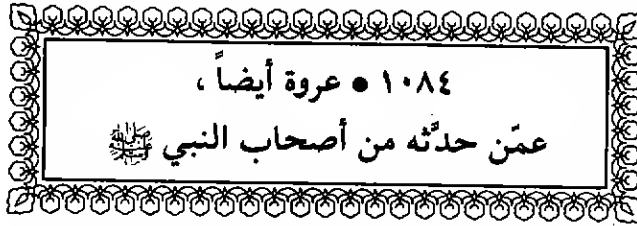 ١٠٨٤ • عروة أيضاً ،
عمّن حدَّثه من أصحاب النبي ﷺ